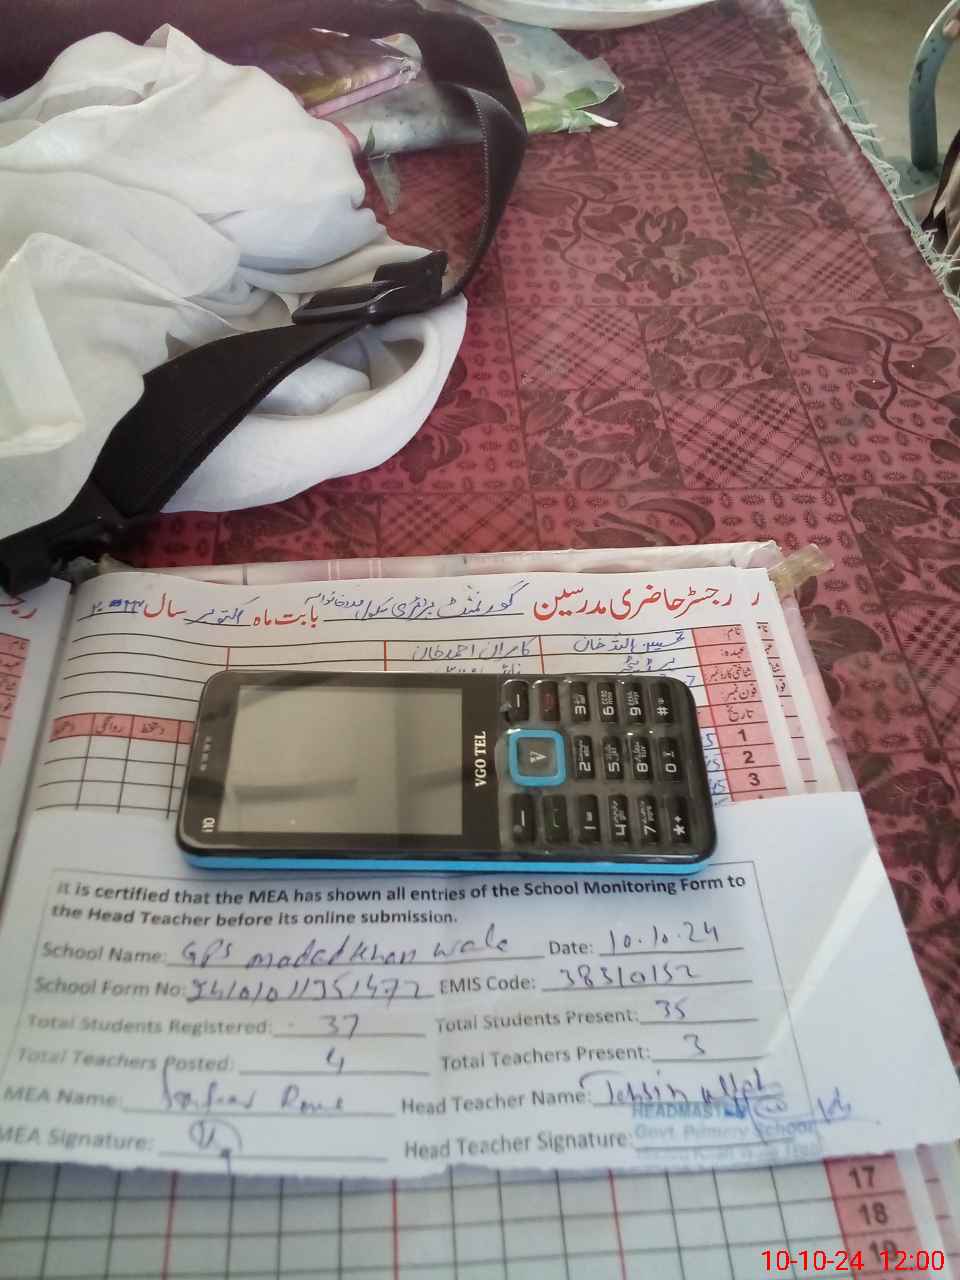 رجسٹر حاضری مدرسین گورنمنٹ پرائمری سکول مددخانوالہ بابت ماہ اکتوبر سال
نام: تحسین اللہ خان کامران احمد خان
عہدہ:
شناختی کارڈ نمبر:
فون نمبر:
تاریخ دستخط روانگی
1
2
3
VGO TEL
i10
It is certified that the MEA has shown all entries of the School Monitoring Form to
the Head Teacher before its online submission.
School Name: GPS madad Khan wala Date: 10.10.24
School Form No: EMIS Code: 38310152
Total Students Registered: 37 Total Students Present: 35
Total Teachers Posted: 4 Total Teachers Present: 3
MEA Name: Head Teacher Name: Tehsin ullah
MEA Signature: Head Teacher Signature:
HEADMASTER
Govt. Primary School
17
18
19
10-10-24 12:00